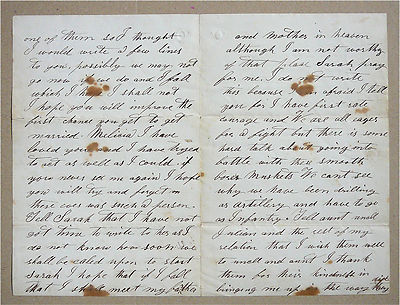 one of them so I thought
I would write a few lines
to you possibly we may not
go now if we do and I fall
which I hope I shall not
I hope you will improve the
first chance you get to get
married Melissa I have
loved you and I have tryed
to act as well as I could if
you never see me again I hope
you will try and forget
there ever was such a person
Tell Sarah that I have not
got time to write to her as I
do not know how soon we
shall be called upon to start
Sarah I hope that if I fall
that I shall meet my father
and Mother in heaven
although I am not worthy
of that place Sarah pray
for me. I do not write
this because I am afraid I tell
you for I have first rate
courage and We are all eager
for a fight but there is some
hard talk about going into
battle with these smooth
bores Muskets We cant see
why we have been drilling
as artillery and have to go
as Infantry. Tell aunt uncle
Julian and the rest of my
relation that I wish them well
to uncle and aunt I thank
them for their kindness in
bringing me up in the way they